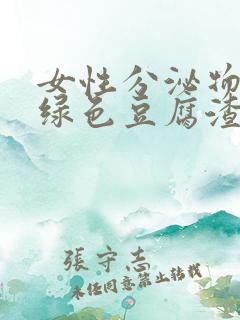 女性分泌物
绿色豆腐渣
張守志
未经同意禁止转载